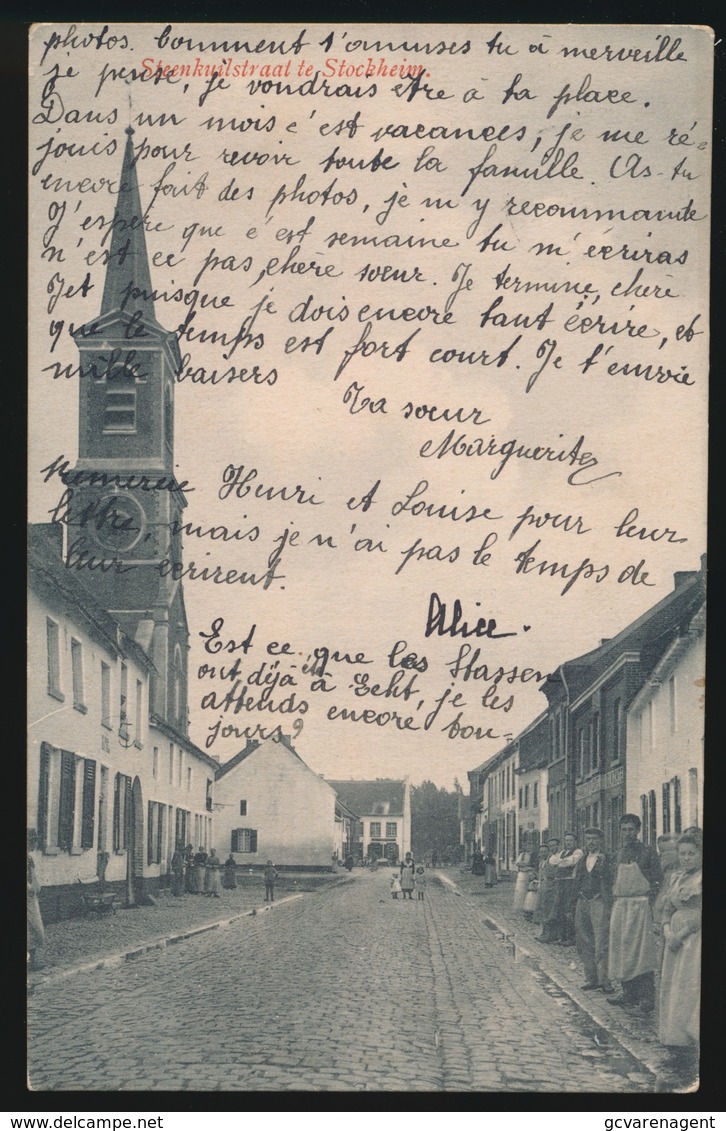 photos. Comment t'amuses tu à merveille
Steenkuilstraat te Stockheim.
je pense, je voudrais être à ta place.
Dans un mois c'est vacances, je me ré=
jouis pour revoir toute la famille. As-tu
encore fait des photos, je m'y recommande
J'espère que c'est semaine tu m'écriras
n'est ce pas, chère sœur. Je termine, chère
Jet puisque je dois encore tant écrire, et
que le temps est fort court. Je t'envoie
mille baisers
Ta sœur
Marguerite
Remercie Henri et Louise pour leur
lettre, mais je n'ai pas le temps de
leur écrirent.
Alice.
Est ce que les Stassen
ont déjà été à Echt, je les
attends encore tou-
jours?
gcvarenagent